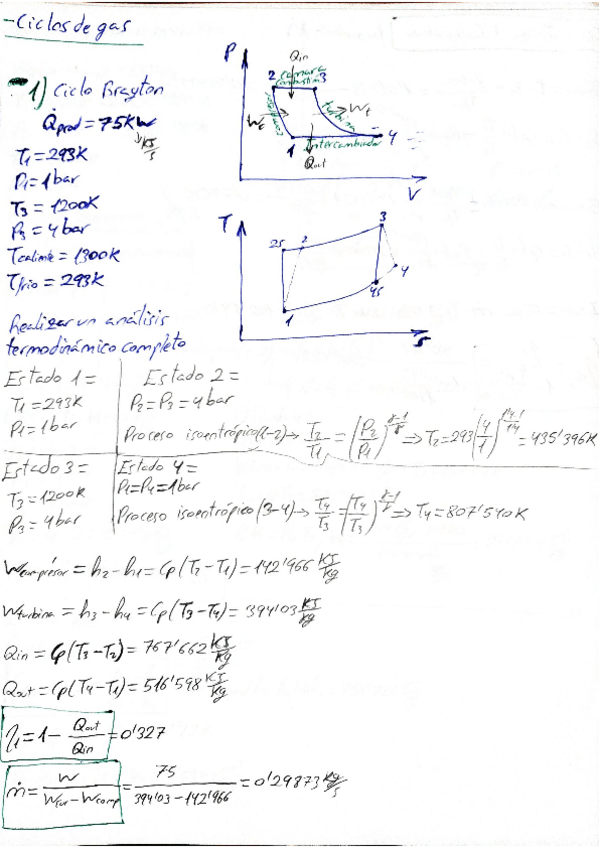 -Ciclos de gas
1) Ciclo Brayton
Qprod = 75KW
KJ/s
T1 = 293K
P1 = 1bar
T3 = 1200K
P3 = 4bar
Tcaliente = 1300K
Tfrio = 293K
Realizar un análisis
termodinámico completo
P
Qin
2 cámara 3
combustión
Wc
turbina
Wt
1 Intercambiador 4
Qout
V
T
2s 2 3
4
4s
1
s
Estado 1 =
T1 = 293K
P1 = 1bar
Estado 2 =
P2 = P3 = 4bar
Proceso isoentrópico (1-2) → T2/T1 = (P2/P1)^(γ-1/γ) ⇒ T2 = 293(4/1)^(1'4-1/1'4) = 435'396K
Estado 3 =
T3 = 1200K
P3 = 4bar
Estado 4 =
P1 = P4 = 1bar
Proceso isoentrópico (3-4) → T4/T3 = (T4/T3)^(γ-1/γ) ⇒ T4 = 807'540K
Wcompresor = h2 - h1 = Cp(T2 - T1) = 142'966 KJ/Kg
Wturbina = h3 - h4 = Cp(T3 - T4) = 394'03 KJ/Kg
Qin = Cp(T3 - T2) = 767'662 KJ/Kg
Qout = Cp(T4 - T1) = 516'598 KJ/Kg
η = 1 - Qout/Qin = 0'327
ṁ = W/(Wtur - Wcomp) = 75/(394'03 - 142'966) = 0'29873 Kg/s